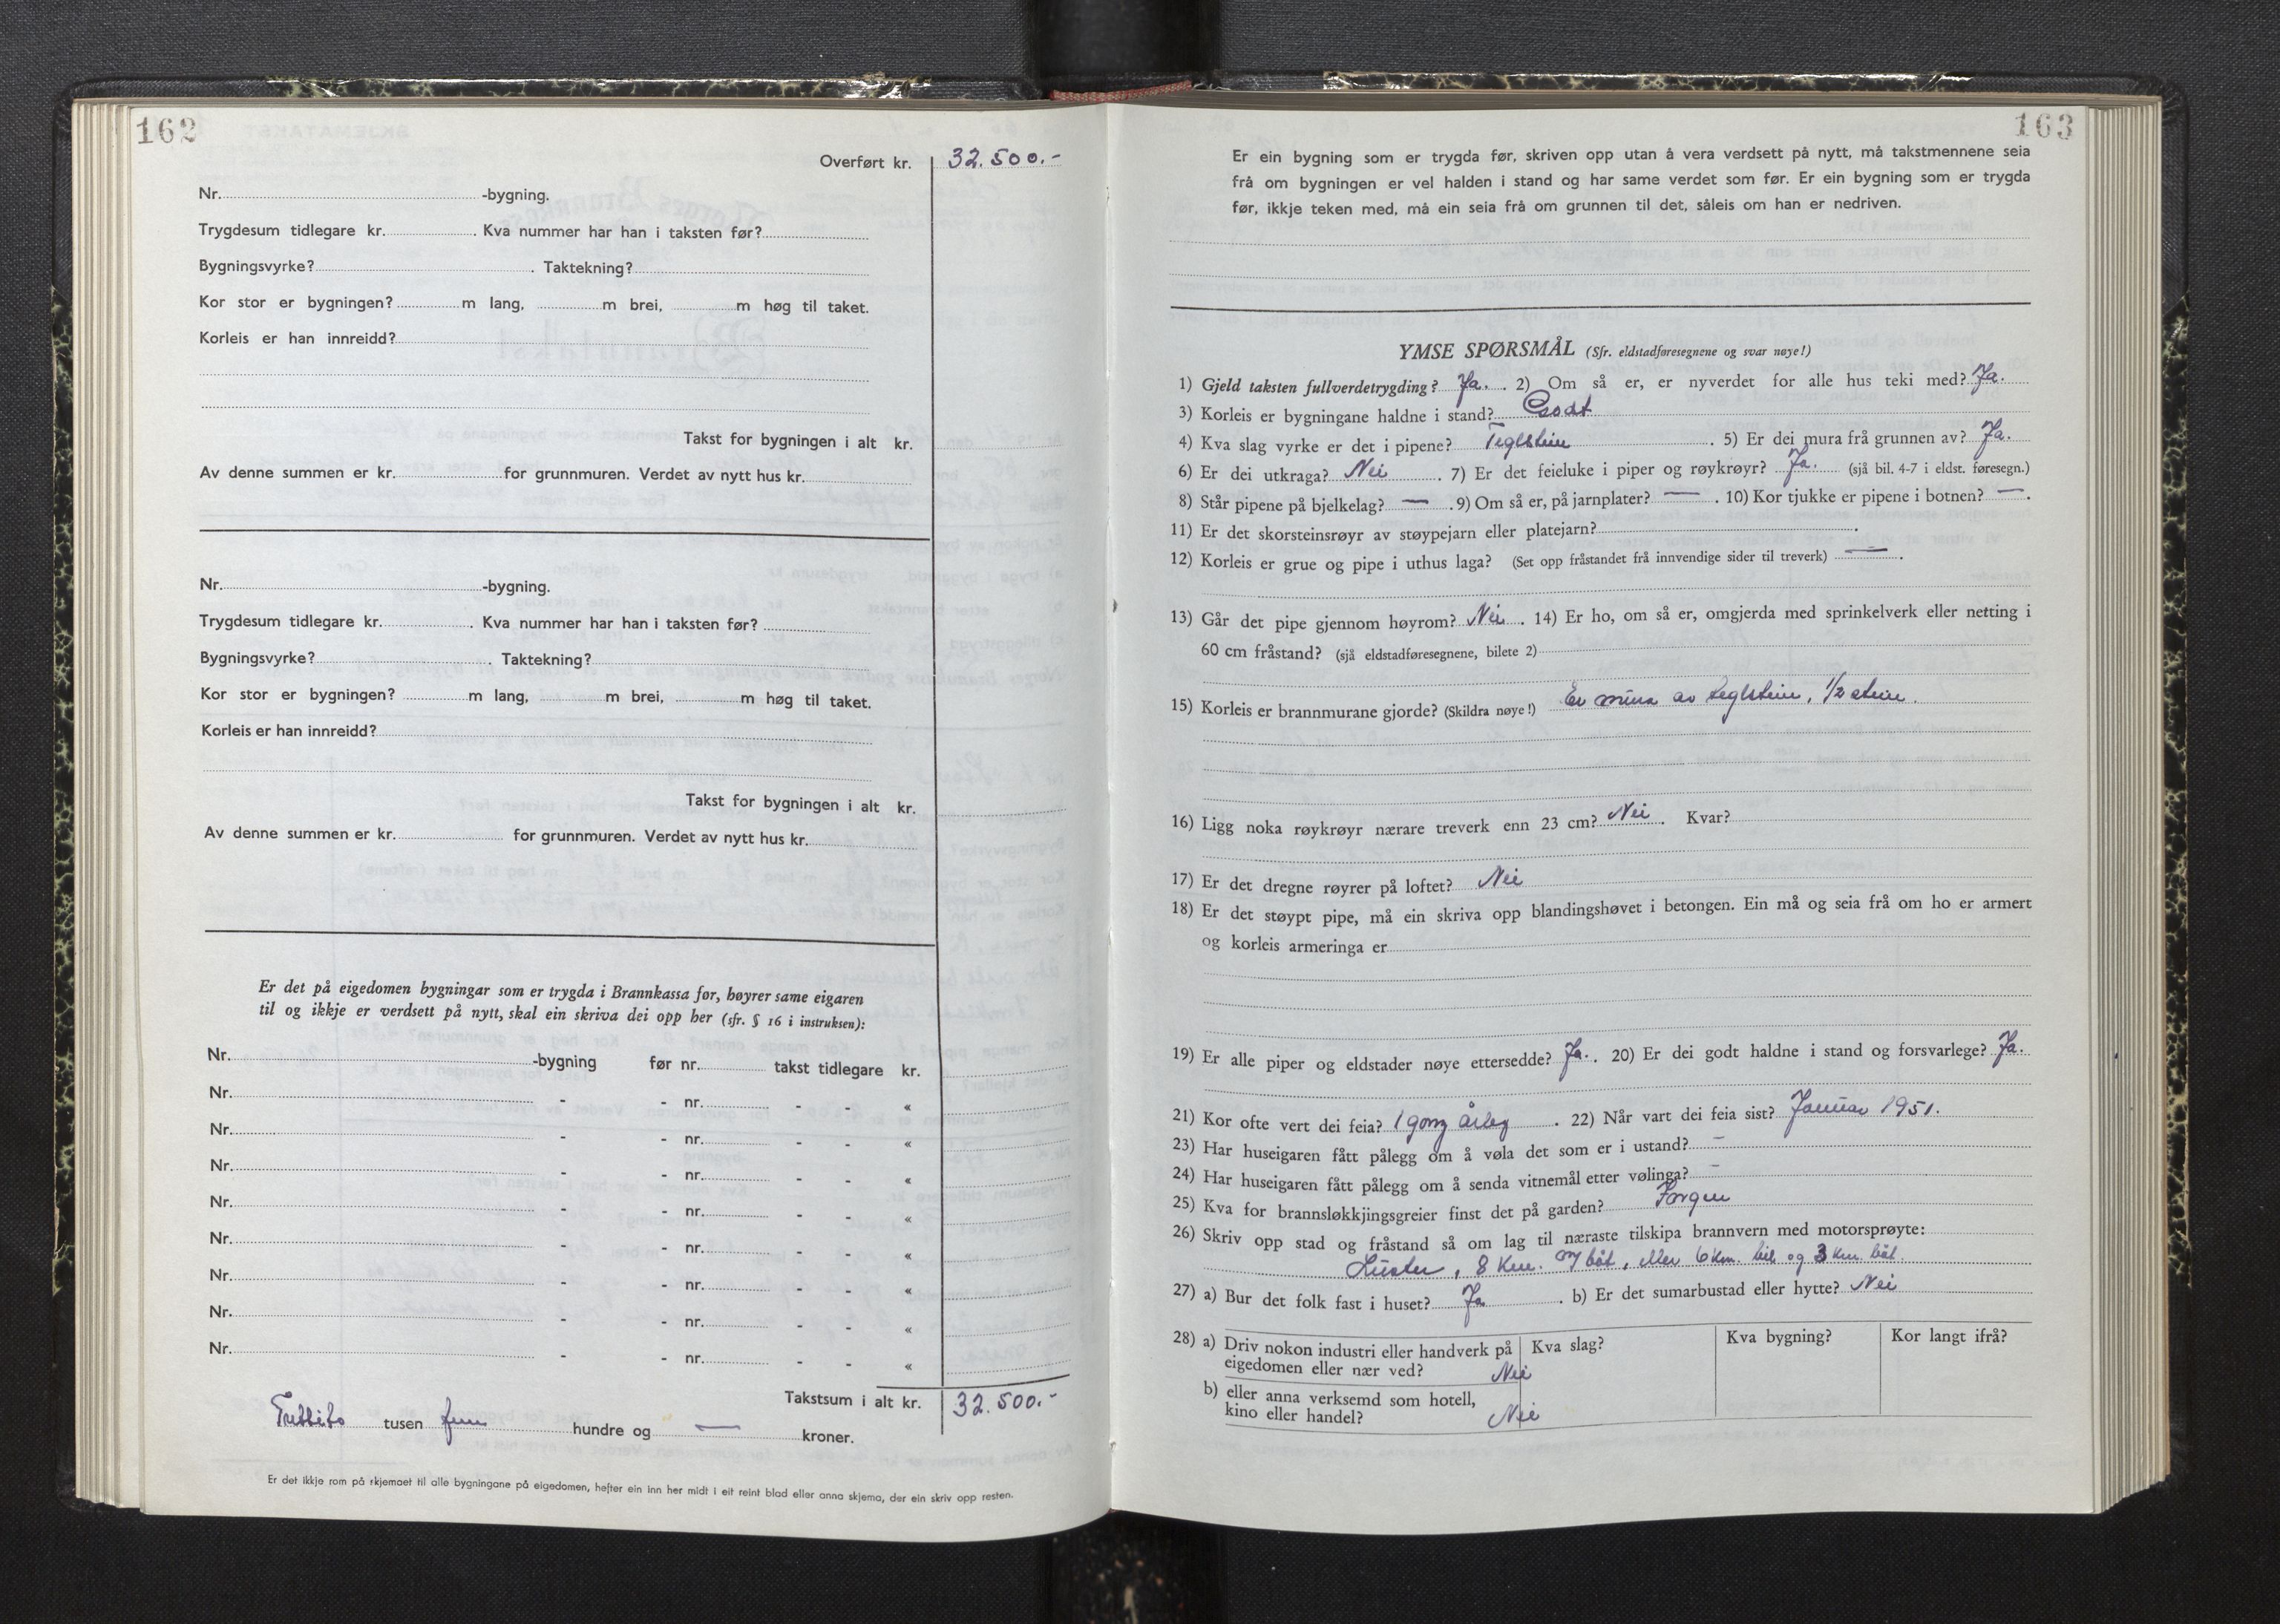 162
Overført kr. 32.500.-
Nr. -bygning.
Trygdesum tidlegare kr. . Kva nummer har han i taksten før?
Bygningsvyrke? . Taktekning?
Kor stor er bygningen? m lang, m brei, m høg til taket.
Korleis er han innreidd?
Takst for bygningen i alt kr.
Av denne summen er kr. for grunnmuren. Verdet av nytt hus kr.
Nr. -bygning.
Trygdesum tidlegare kr. . Kva nummer har han i taksten før?
Bygningsvyrke? . Taktekning?
Kor stor er bygningen? m lang, m brei, m høg til taket.
Korleis er han innreidd?
Takst for bygningen i alt kr.
Av denne summen er kr. for grunnmuren. Verdet av nytt hus kr.
Er det på eigedomen bygningar som er trygda i Brannkassa før, høyrer same eigaren
til og ikkje er verdsett på nytt, skal ein skriva dei opp her (sfr. § 16 i instruksen):
Nr. -bygning før nr. takst tidlegare kr.
Nr. - - nr. - - «
Nr. - - nr. - - «
Nr. - - nr. - - «
Nr. - - nr. - - «
Nr. - - nr. - - «
Nr. - - nr. - - «
Nr. - - nr. - - «
Nr. - - nr. - - «
Takstsum i alt kr. 32.500.-
Trettito tusen fem hundre og — kroner.
Er det ikkje rom på skjemaet til alle bygningane på eigedomen, hefter ein inn her midt i eit reint blad eller anna skjema, der ein skriv opp resten.
163
Er ein bygning som er trygda før, skriven opp utan å vera verdsett på nytt, må takstmennene seia
frå om bygningen er vel halden i stand og har same verdet som før. Er ein bygning som er trygda
før, ikkje teken med, må ein seia frå om grunnen til det, såleis om han er nedriven.
YMSE SPØRSMÅL (Sfr. eldstadføresegnene og svar nøye!)
1) Gjeld taksten fullverdetrygding? Ja. . 2) Om så er, er nyverdet for alle hus teki med? Ja.
3) Korleis er bygningane haldne i stand? Godt
4) Kva slag vyrke er det i pipene? Teglstein . 5) Er dei mura frå grunnen av? Ja.
6) Er dei utkraga? Nei . 7) Er det feieluke i piper og røykrøyr? Ja. (sjå bil. 4-7 i eldst. føresegn.)
8) Står pipene på bjelkelag? — . 9) Om så er, på jarnplater? — . 10) Kor tjukke er pipene i botnen? — .
11) Er det skorsteinsrøyr av støypejarn eller platejarn? .
12) Korleis er grue og pipe i uthus laga? (Set opp fråstandet frå innvendige sider til treverk) — .
13) Går det pipe gjennom høyrom? Nei . 14) Er ho, om så er, omgjerda med sprinkelverk eller netting i
60 cm fråstand? (sjå eldstadføresegnene, bilete 2)
15) Korleis er brannmurane gjorde? (Skildra nøye!) Er mura av teglstein, 1/2 stein.
16) Ligg noka røykrøyr nærare treverk enn 23 cm? Nei . Kvar?
17) Er det dregne røyrer på loftet? Nei
18) Er det støypt pipe, må ein skriva opp blandingshøvet i betongen. Ein må og seia frå om ho er armert
og korleis armeringa er
19) Er alle piper og eldstader nøye ettersedde? Ja. . 20) Er dei godt haldne i stand og forsvarlege? Ja.
21) Kor ofte vert dei feia? 1 gong årleg . 22) Når vart dei feia sist? Januar 1951.
23) Har huseigaren fått pålegg om å vøla det som er i ustand? -
24) Har huseigaren fått pålegg om å senda vitnemål etter vølinga? -
25) Kva for brannsløkkjingsgreier finst det på garden? Jorgen
26) Skriv opp stad og fråstand så om lag til næraste tilskipa brannvern med motorsprøyte:
Luster, 8 Km. m/båt, eller 6 Km. bil og 3 Km. båt.
27) a) Bur det folk fast i huset? Ja . b) Er det sumarbustad eller hytte? Nei
28) a) Driv nokon industri eller handverk på
eigedomen eller nær ved? Nei
Kva slag?
Kva bygning?
Kor langt ifrå?
b) eller anna verksemd som hotell,
kino eller handel? Nei